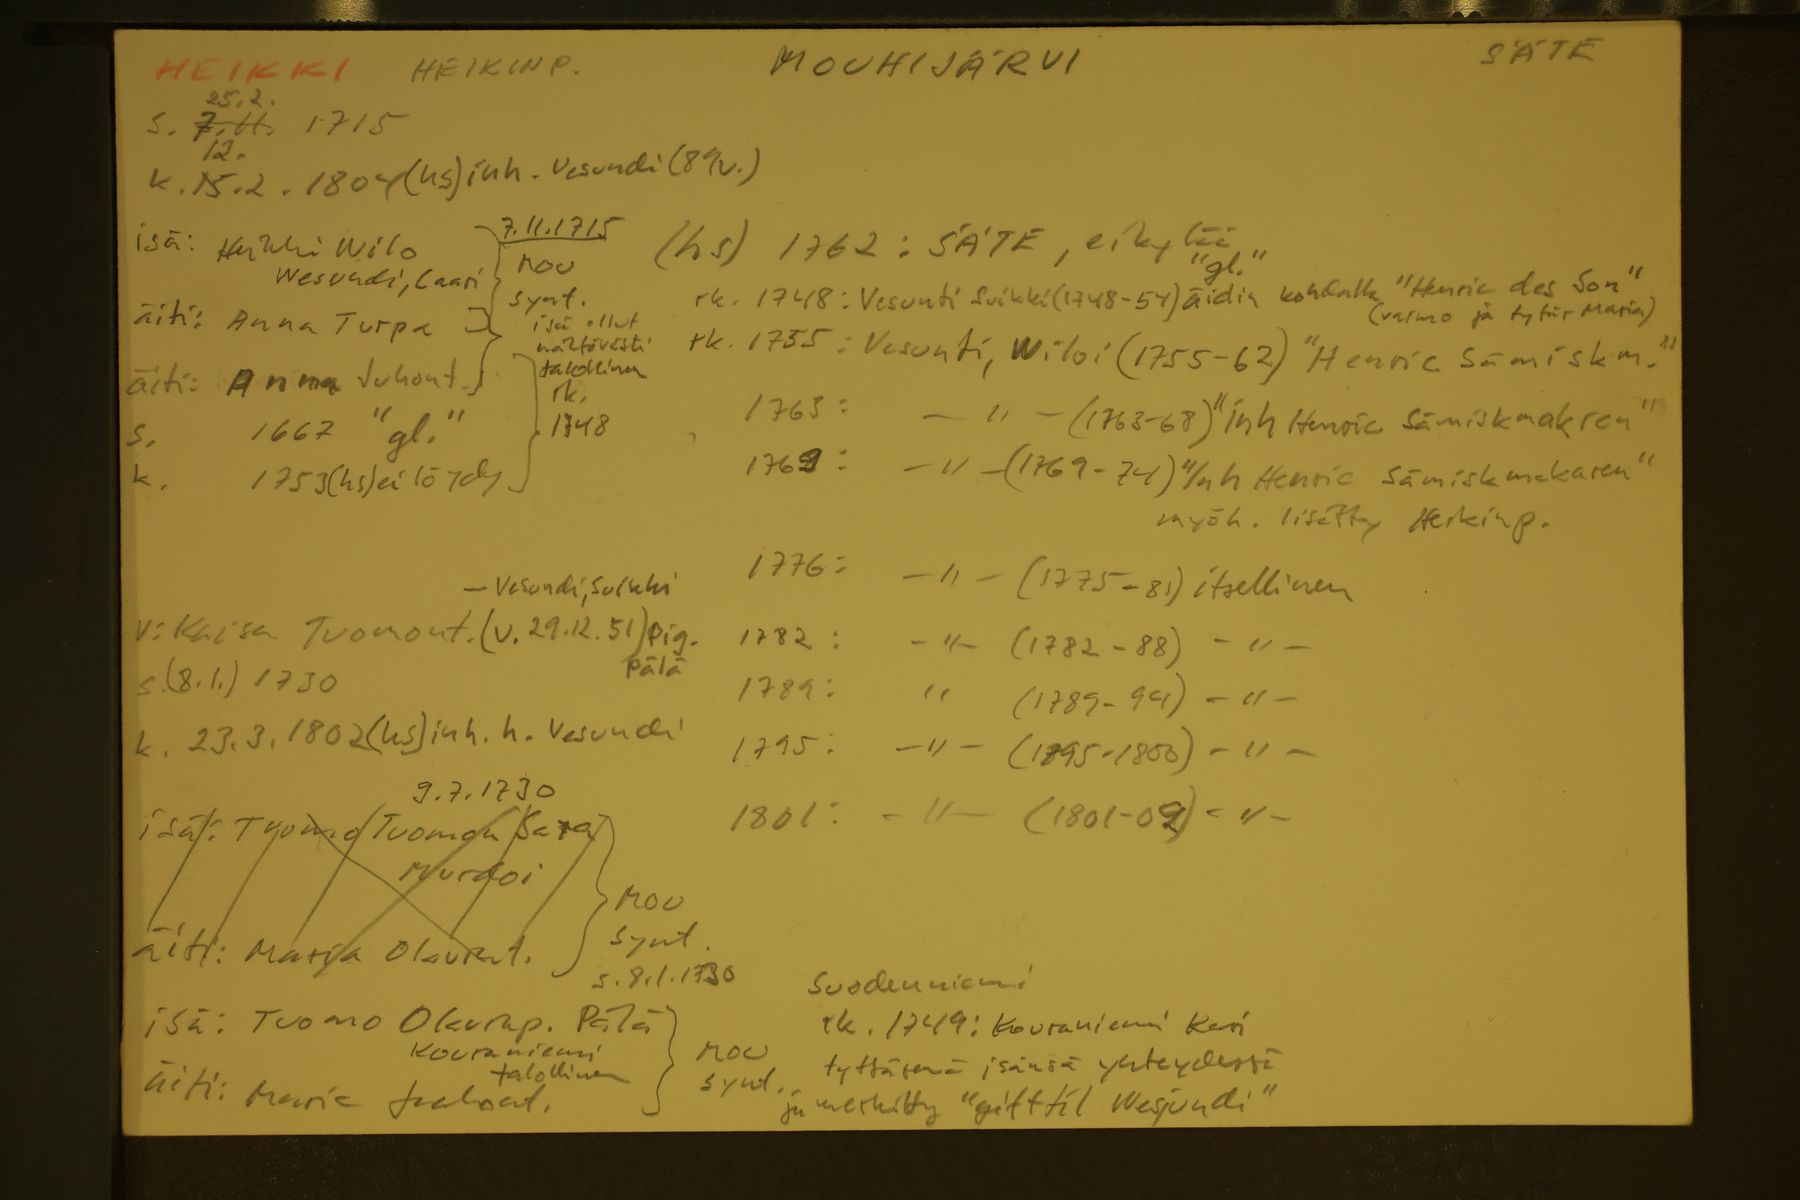 HEIKKI HEIKINP. MOUHIJÄRVI SÄTE
25.2.
s. 7.11. 1715
12.
k. 15.2. 1804 (hs) inh. Vesundi (89v.)
isä: Heikki Wilo
Wesundi, Laari
äiti: Anna Turpa
7.11.1715
MOU
synt.
isä ollut
nähtävästi
talollinen
rk.
1748
äiti: Anna Juhont.
s. 1667 "gl."
k. 1753 (hs) ei löydy
(hs) 1762: SÄTE, ei kytää
"gl."
rk. 1748: Vesunti Suikki (1748-54) äidin kohdalla "Henric des Son"
(vaimo ja tytär Maria)
rk. 1755: Vesunti, Wiloi (1755-62) "Henric Sämiskm."
1763: — " — (1763-68) "inh Henric Sämiskmakren"
1769: — " — (1769-74) "Inh Henric Sämiskmakaren"
myöh. lisätty Heikinp.
1776: — " — (1775-81) itsellinen
1782: — " — (1782-88) — " —
1789: " (1789-94) — " —
1795: — " — (1795-1800) — " —
1801: — " — (1801-09) — " —
— Vesundi, Suikki
v: Kaisa Tuomont. (v. 29.12.51) pig.
Pälä
s. (8.1.) 1730
k. 23.3.1802 (hs) inh. h. Vesundi
9.7.1730
isä: Tuomo Tuomon Sara
Murdoi
äiti: Maria Olavint.
MOU
synt.
s. 8.1.1730
isä: Tuomo Olavinp. Pälä
Kouraniemi
talollinen
äiti: Maria Jaakont.
MOU
synt.
Suodenniemi
rk. 1749: Kouraniemi Kari
tyttärenä isänsä yhteydessä
ja merkitty "gift til Wesjundi"